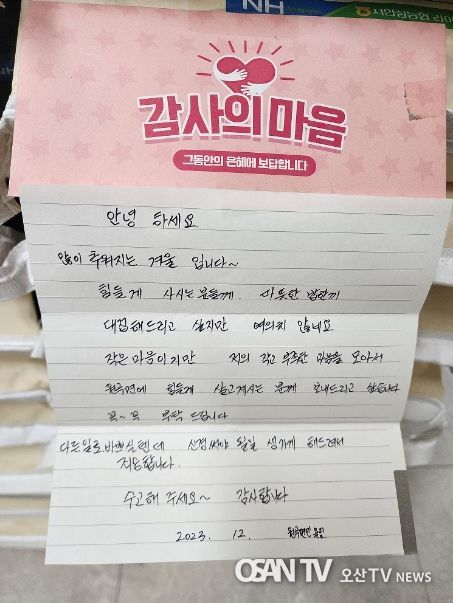 NH
감사의 마음
그동안의 은혜에 보답합니다
안녕 하세요
많이 추워지는 겨울 입니다~
힘들게 사시는 분들께. 따뜻한 밥한끼
대접해드리고 싶지만 여의치 않네요
작은 마음이지만 저의 작고 부족한 마음을 모아서
원곡면에 힘들게 살고계시는 분께 보내드리고 싶습니다
꼭~ 꼭 부탁 드립니다
다른일로 바쁘실텐데 신경써야 될일 생기게 해드려서
죄송합니다.
수고해 주세요~ 감사합니다
2023. 12.
OSAN TV 오산TV NEWS